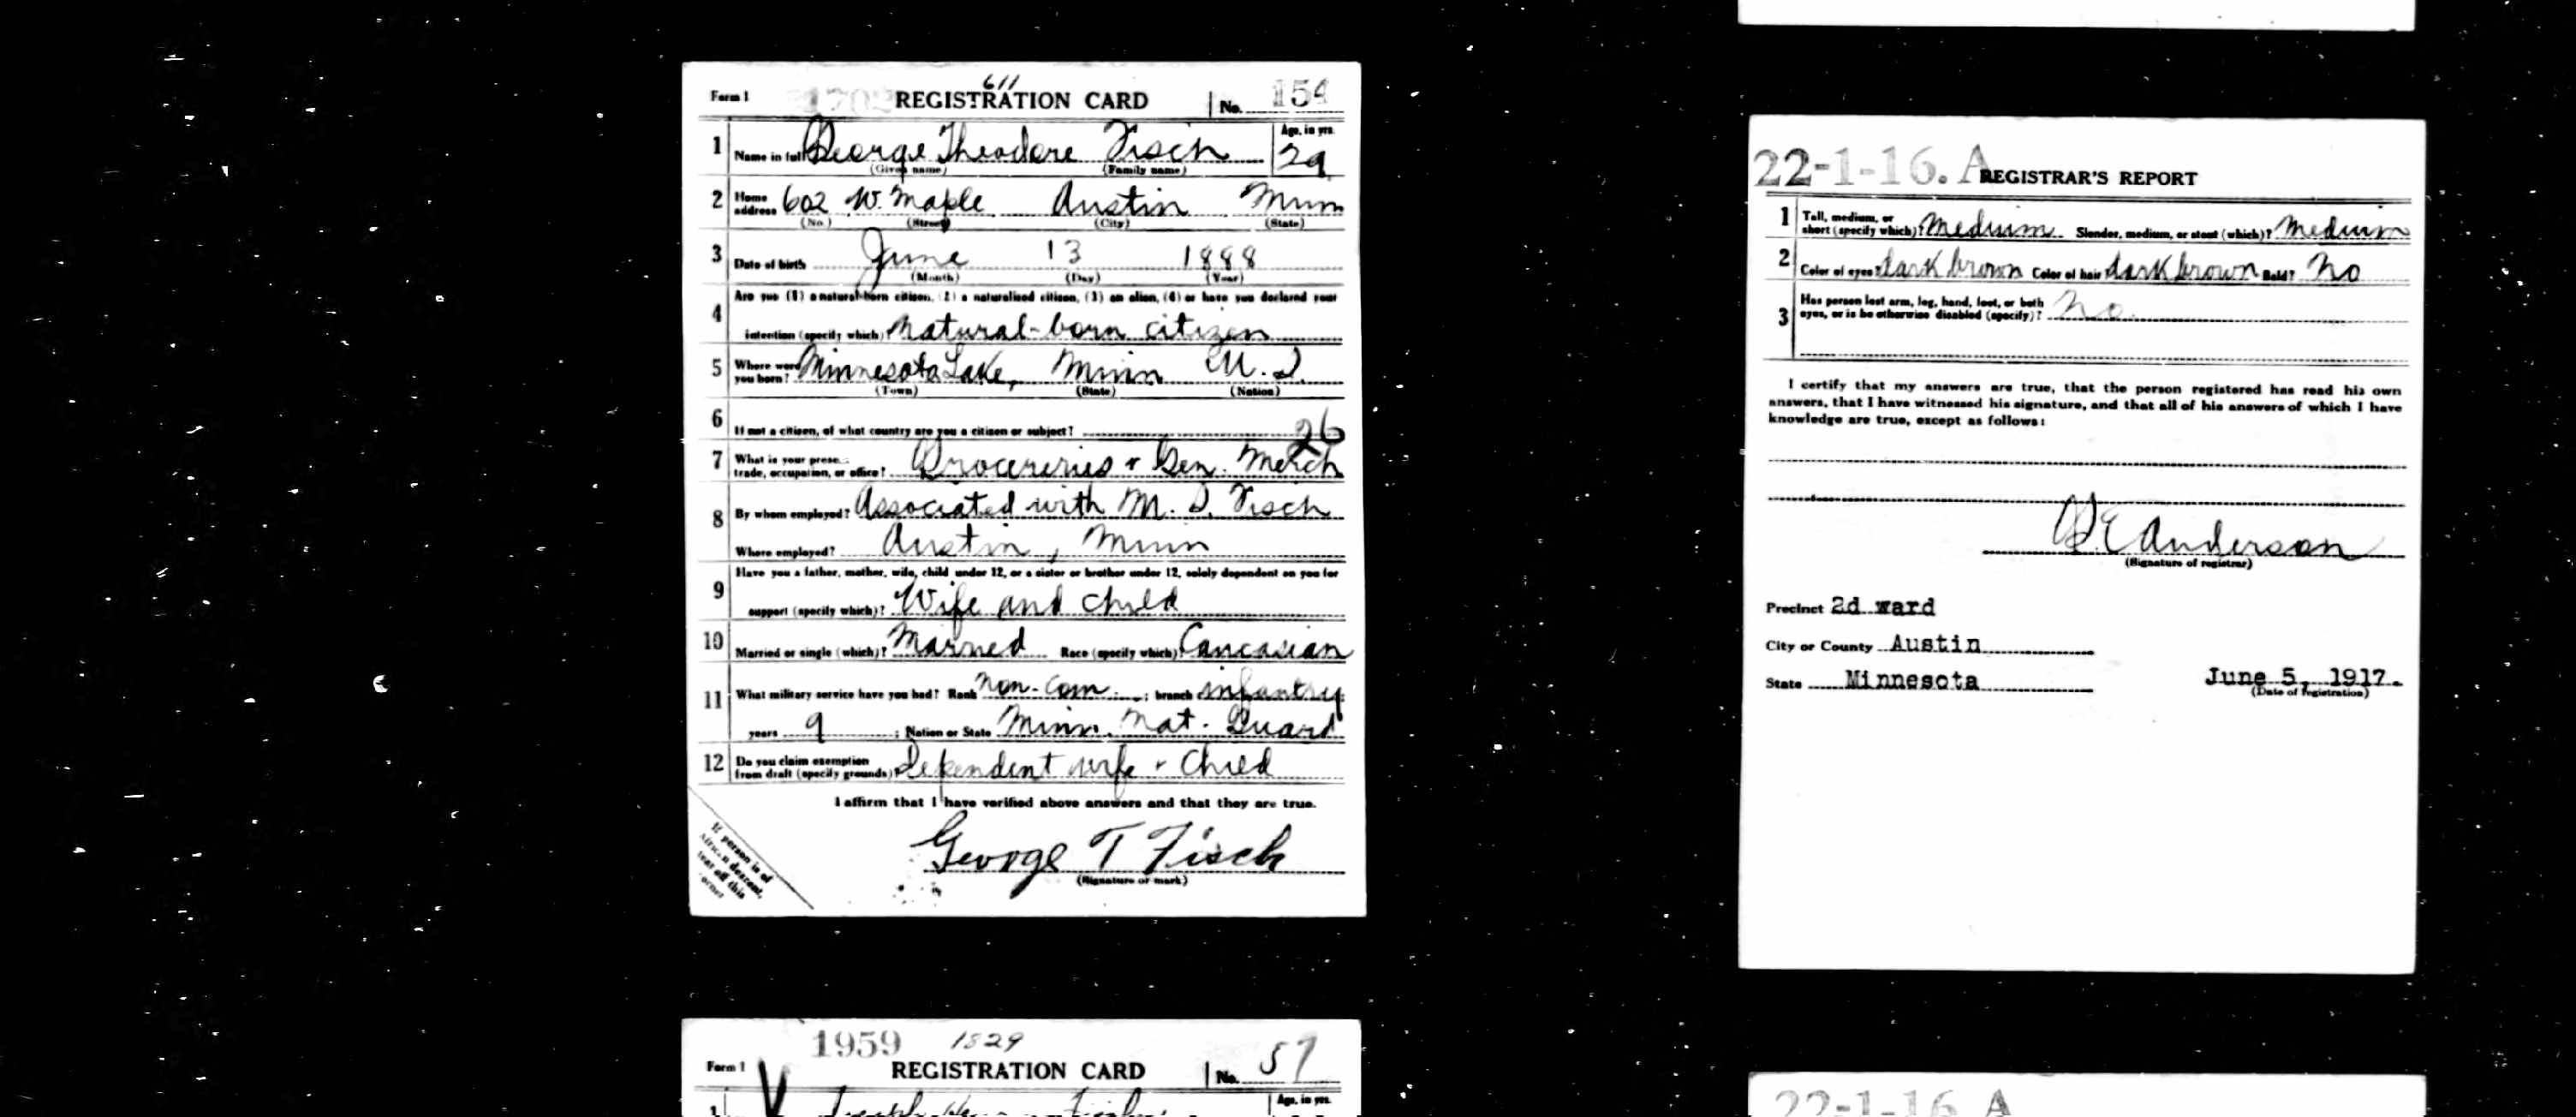 611
Form 1 1702 REGISTRATION CARD No. 154
1 Name in full George Theodore Fisch Age, in yrs. 29
(Given name) (Family name)
2 Home address 602 W. Maple Austin Minn
(No.) (Street) (City) (State)
3 Date of birth June 13 1888
(Month) (Day) (Year)
4 Are you (1) a natural-born citizen, (2) a naturalized citizen, (3) an alien, (4) or have you declared your
intention (specify which)? Natural-born citizen
5 Where were you born? Minnesota Lake, Minn U.S.
(Town) (State) (Nation)
6 If not a citizen, of what country are you a citizen or subject?
26
7 What is your present trade, occupation, or office? Grocereries + Gen. Merch
8 By whom employed? Associated with M. S. Fisch
Where employed? Austin, Minn
9 Have you a father, mother, wife, child under 12, or a sister or brother under 12, solely dependent on you for
support (specify which)? Wife and child
10 Married or single (which)? Married Race (specify which)? Caucasian
11 What military service have you had? Rank non-com. ; branch infantry
years 9 ; Nation or State Minn. Nat. Guard
12 Do you claim exemption from draft (specify grounds)? Dependent wife + Child
I affirm that I have verified above answers and that they are true.
George T Fisch
(Signature or mark)
If person is of
African descent,
tear off this
corner
22-1-16. A REGISTRAR'S REPORT
1 Tall, medium, or short (specify which)? Medium Slender, medium, or stout (which)? Medium
2 Color of eyes? dark brown Color of hair? dark brown Bald? No
3 Has person lost arm, leg, hand, foot, or both eyes, or is he otherwise disabled (specify)? No.
I certify that my answers are true, that the person registered has read his own
answers, that I have witnessed his signature, and that all of his answers of which I have
knowledge are true, except as follows:
Anderson
(Signature of registrar)
Precinct 2d ward
City or County Austin
State Minnesota June 5, 1917.
(Date of registration)
1959 1829
Form 1 REGISTRATION CARD No. 57
1 Age, in yrs.
22-1-16 A